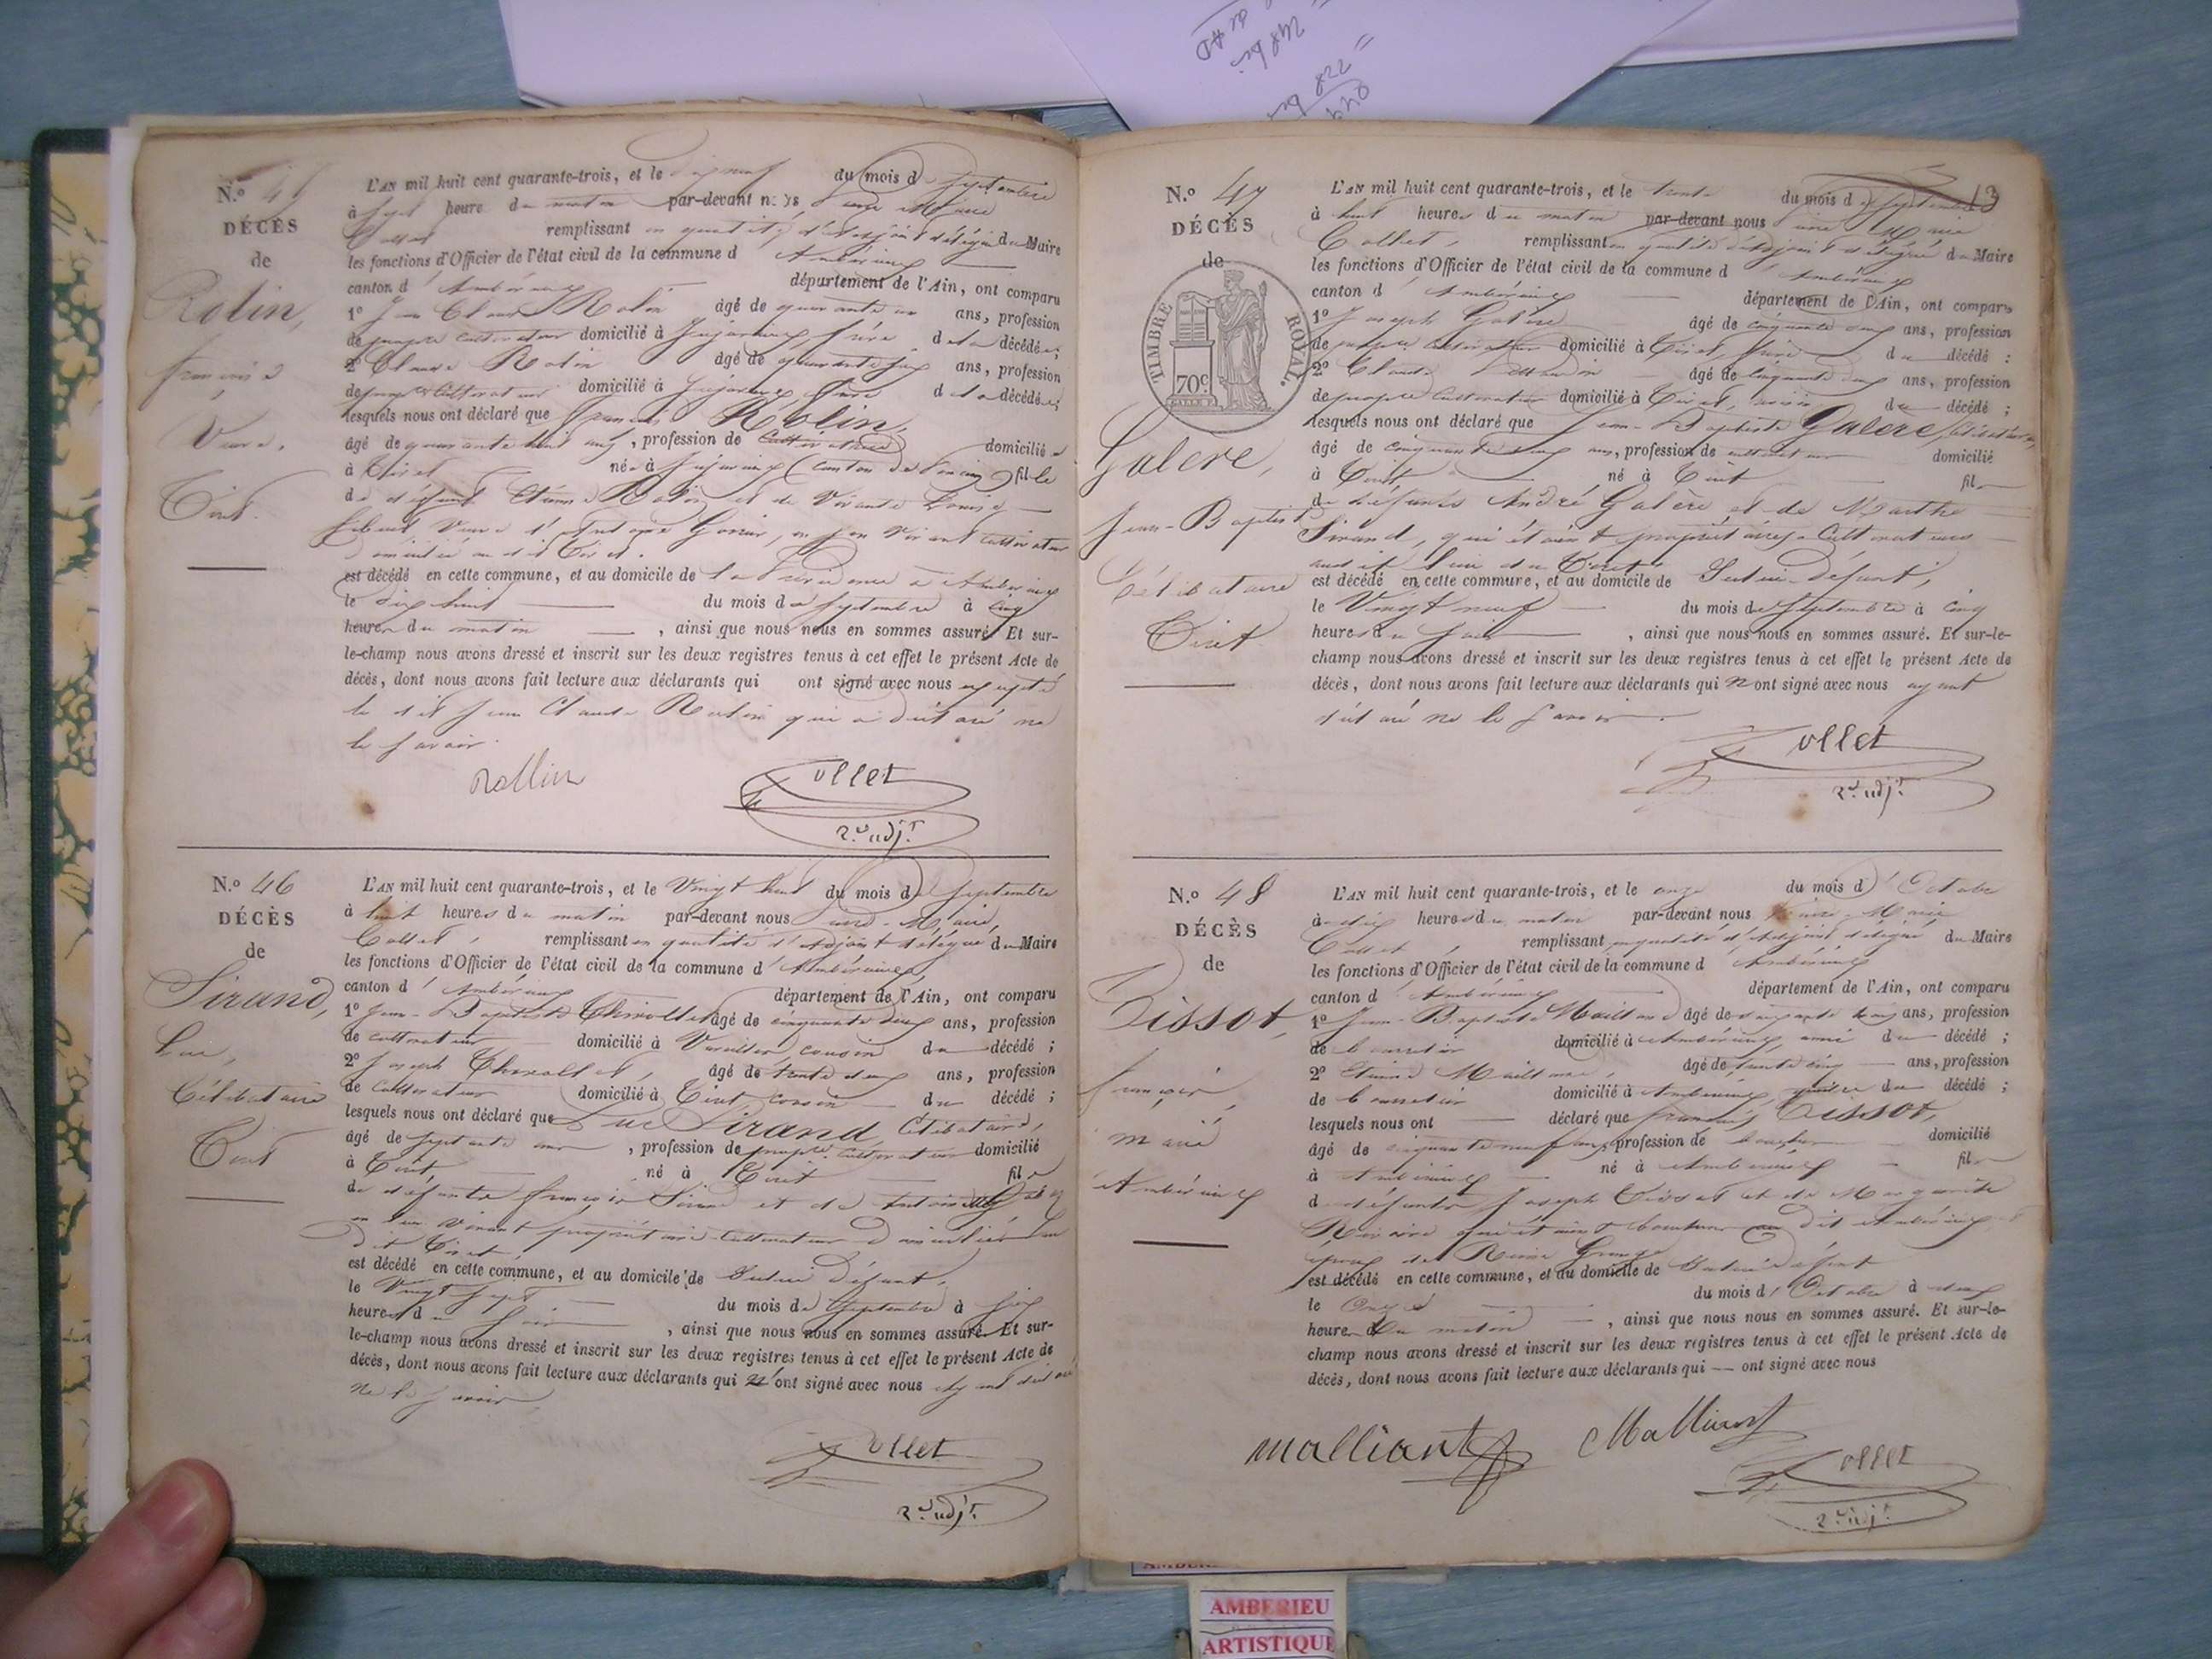 N.º 45
DÉCÈS
de
Rolin,
Veuve.
Tiret.
L'AN mil huit cent quarante-trois, et le dix neuf du mois de Septembre
à sept heure du matin par-devant nous
Collet remplissant en qualité d'adjoint délégué du Maire
les fonctions d'Officier de l'état civil de la commune d'Ambérieux
canton d'Ambérieux département de l'Ain, ont comparu
1º Jean Claude Rolin âgé de quarante un ans, profession
de propre cultivateur domicilié à Jujurieux frère de la décédée;
2º Claude Rolin âgé de quarante six ans, profession
de propre cultivateur domicilié à Jujurieux frère de la décédée;
lesquels nous ont déclaré que Rolin,
âgé de quarante huit ans, profession de cultivatrice domiciliée
à Tiret née à Jujurieux (canton de Poncin) fille
de défunt Etienne Rolin et de Vivante Louise
est décédé en cette commune, et au domicile de
le dix huit du mois de Septembre à cinq
heures du matin, ainsi que nous nous en sommes assuré. Et sur-
le-champ nous avons dressé et inscrit sur les deux registres tenus à cet effet le présent Acte de
décès, dont nous avons fait lecture aux déclarants qui ont signé avec nous excepté
le dit Jean Claude Rolin qui a déclaré ne
le savoir.
Rollin
Collet
2.e adj.t
N.º 46
DÉCÈS
de
Sirand,
Luc,
Célibataire
Tiret
L'AN mil huit cent quarante-trois, et le Vingt huit du mois de Septembre
à huit heures du matin par-devant nous
Collet, remplissant en qualité d'adjoint délégué du Maire
les fonctions d'Officier de l'état civil de la commune d'Ambérieux,
canton d'Ambérieux département de l'Ain, ont comparu
1º Jean-Baptiste âgé de cinquante deux ans, profession
de cultivateur domicilié à cousin du décédé;
2º Joseph âgé de trente deux ans, profession
de cultivateur domicilié à Tiret cousin du décédé;
lesquels nous ont déclaré que Luc Sirand, Célibataire,
âgé de septante ans, profession de propre. cultivateur domicilié
à Tiret né à Tiret fils
de défunts François Sirand et de
en leur vivant propriétaires-cultivateurs domiciliés au
dit Tiret,
est décédé en cette commune, et au domicile de Sudit Défunt,
le Vingt sept du mois de Septembre à six
heures du soir, ainsi que nous nous en sommes assuré. Et sur-
le-champ nous avons dressé et inscrit sur les deux registres tenus à cet effet le présent Acte de
décès, dont nous avons fait lecture aux déclarants qui n'ont signé avec nous ayant déclaré
ne le savoir
Collet
2.e adj.t
13
N.º 47
DÉCÈS
de
TIMBRE ROYAL.
70c
Galere,
Jean-Baptiste
Célibataire
Tiret
L'AN mil huit cent quarante-trois, et le trente du mois de Septembre
à huit heures du matin par-devant nous
Collet, remplissant en qualité d'adjoint délégué du Maire
les fonctions d'Officier de l'état civil de la commune d'Ambérieux
canton d'Ambérieux département de l'Ain, ont comparu
1º Joseph Galère âgé de cinquante deux ans, profession
de propre cultivateur domicilié à Tiret, frère du décédé:
2º Claude âgé de cinquante deux ans, profession
de propre cultivateur domicilié à Tiret, voisin du décédé;
lesquels nous ont déclaré que Jean-Baptiste Galere, célibataire,
âgé de cinquante ans, profession de cultivateur domicilié
à Tiret né à Tiret fils
de défunts André Galère et de Marthe
Sirand, qui étaient propriétaires-Cultivateurs
audit lieu de Tiret
est décédé en cette commune, et au domicile de Sudit défunt,
le Vingt neuf du mois de Septembre à cinq
heures du soir, ainsi que nous nous en sommes assuré. Et sur-le-
champ nous avons dressé et inscrit sur les deux registres tenus à cet effet le présent Acte de
décès, dont nous avons fait lecture aux déclarants qui n'ont signé avec nous ayant
déclaré ne le savoir.
Collet
2.e adj.t
N.º 48
DÉCÈS
de
Tissot,
François,
Marié
Ambérieux
L'AN mil huit cent quarante-trois, et le onze du mois d'Octobre
à dix heures du matin par-devant nous
Collet remplissant en qualité d'adjoint délégué du Maire
les fonctions d'Officier de l'état civil de la commune d'Ambérieux
canton d'Ambérieux département de l'Ain, ont comparu
1º Jean-Baptiste âgé de ans, profession
de domicilié à Ambérieux, ami du décédé;
2º Etienne âgé de trente cinq ans, profession
de domicilié à Ambérieux, du décédé;
lesquels nous ont déclaré que François Tissot,
âgé de cinquante neuf ans, profession de domicilié
à Ambérieux né à Ambérieux fils
de défunts Joseph Tissot et de Marguerite
est décédé en cette commune, et au domicile de
le Onze du mois d'Octobre à deux
heures du matin, ainsi que nous nous en sommes assuré. Et sur-le-
champ nous avons dressé et inscrit sur les deux registres tenus à cet effet le présent Acte de
décès, dont nous avons fait lecture aux déclarants qui ont signé avec nous
malliant
Collet
2.e adj.t
AMBERIEU
ARTISTIQUE